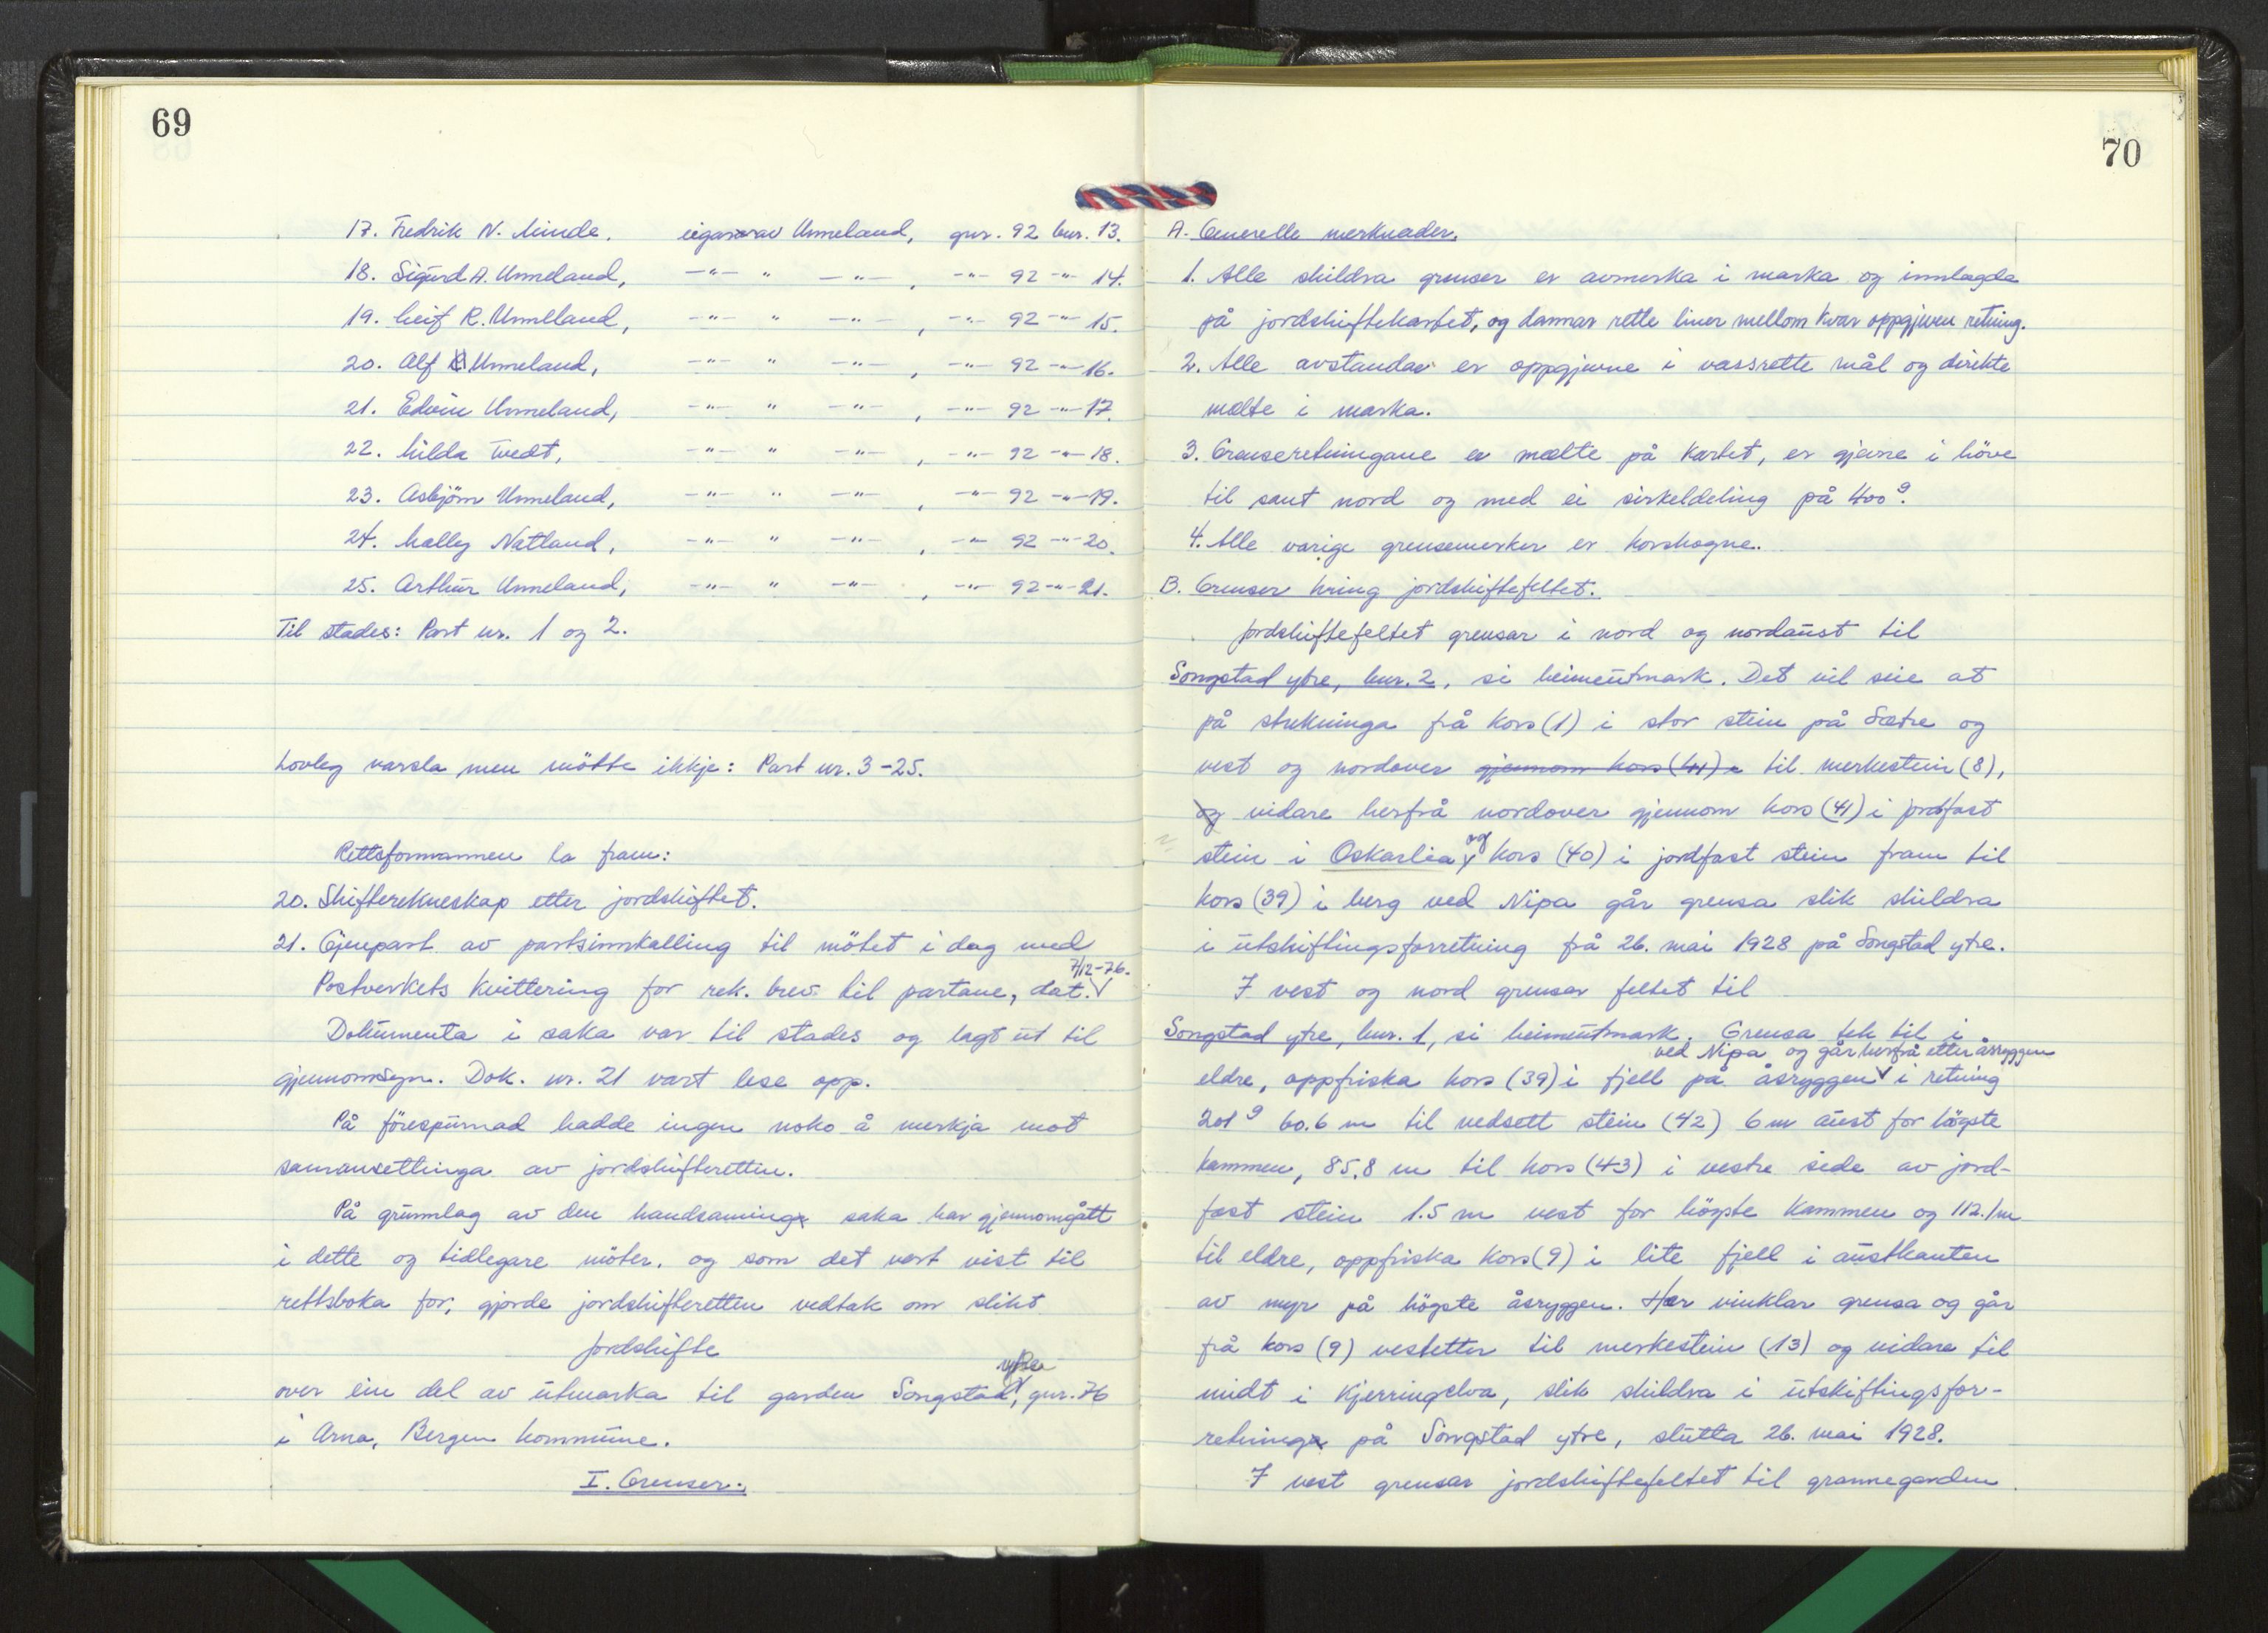 69
17. Fredrik N. Minde, eigar av Unneland, gnr. 92 bnr. 13.
18. Sigurd A. Unneland, -"- " -"- , -"- 92 -"- 14.
19. Leif R. Unneland, -"- " -"- , -"- 92 -"- 15.
20. Alf Unneland, -"- " -"- , -"- 92 -"- 16.
21. Edvin Unneland, -"- " -"- , -"- 92 -"- 17.
22. Hilda Tvedt, -"- " -"- , -"- 92 -"- 18.
23. Asbjörn Unneland, -"- " -"- , -"- 92 -"- 19.
24. Nally Natland, -"- " -"- , -"- 92 -"- 20.
25. Arthur Unneland, -"- " -"- , -"- 92 -"- 21.
Til stades: Part nr. 1 og 2.
Lovleg varsla men mötte ikkje: Part nr. 3-25.
Rettsformannen la fram:
20. Skifterekneskap etter jordskiftet.
21. Gjenpart av partsinnkalling til mötet i dag med
Postverkets kvittering for rek. brev til partane, dat. 7/12-76.
Dokumenta i saka var til stades og lagt ut til
gjennomsyn. Dok. nr. 21 vart lese opp.
På förespurnad hadde ingen noko å merkja mot
samansettinga av jordskifteretten.
På grunnlag av den handsaming saka har gjennomgått
i dette og tidlegare möter, og som det vert vist til
rettsboka for, gjorde jordskifteretten vedtak om slikt
jordskifte
over ein del av utmarka til garden Songstad ytre, gnr. 76
i Arna, Bergen kommune.
I. Grenser.
70
A. Generelle merknader.
1. Alle skildra grenser er avmerka i marka og innlagde
på jordskiftekartet, og dannar rette liner mellom kvar oppgjeven retning.
2. Alle avstandar er oppgjevne i vassrette mål og direkte
målte i marka.
3. Grenseretningane er målte på kartet, er gjevne i höve
til sant nord og med ei sirkeldeling på 400 g.
4. Alle varige grensemerker er krosshogne.
B. Grenser kring jordskiftefeltet.
Jordskiftefeltet grensar i nord og nordaust til
Songstad ytre, bnr. 2, si heimeutmark. Det vil seie at
på strekninga frå kors (1) i stor stein på Sætre og
vest og nordover gjennom kors (41) til merkestein (8),
og vidare herfrå nordover gjennom kors (41) i jordfast
stein i Oskarlia og kors (40) i jordfast stein fram til
kors (39) i berg ved Nipa går grensa slik skildra
i utskiftingsforretning frå 26. mai 1928 på Songstad ytre.
I vest og nord grensar feltet til
Songstad ytre, bnr. 1, si heimeutmark. Grensa tek til i
eldre, oppfriska kors (39) i fjell på åsryggen ved Nipa og går herfrå etter åsryggen i retning
201 g 60.6 m til nedsett stein (42) 6 m aust for högste
kammen, 85.8 m til kors (43) i vestre side av jord-
fast stein 1.5 m vest for högste kammen og 112.1 m
til eldre, oppfriska kors (9) i lite fjell i austkanten
av myr på högste åsryggen. Her vinklar grensa og går
frå kors (9) vestetter til merkestein (13) og vidare til
midt i Kjerringelva, slik skildra i utskiftingsfor-
retning på Songstad ytre, slutta 26. mai 1928.
I vest grensar jordskiftefeltet til grannegarden